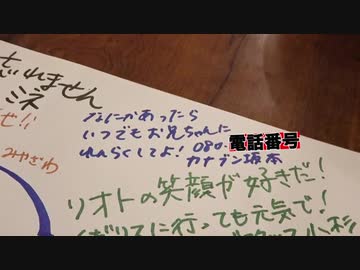 忘れません
ミネ
ぜ!!
みやざわ
なにかあったら
いつでもお兄ちゃんに
れんらくしてよ! 080-
電話番号
カナブン坂本
リオトの笑顔が好きだ!
イギリスに行っても元気で!
小杉